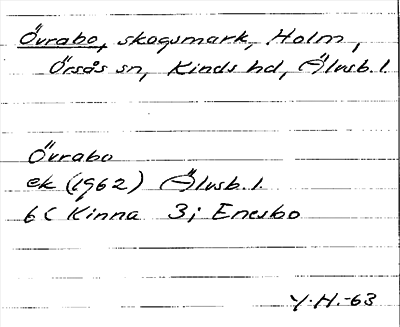 Övrabo, skogsmark, Holm,
Örsås sn, Kinds hd, Älvsb. l.
Övrabo
ek (1962) Älvsb. l.
6C Kinna 3i Enesbo
Y.H.-63